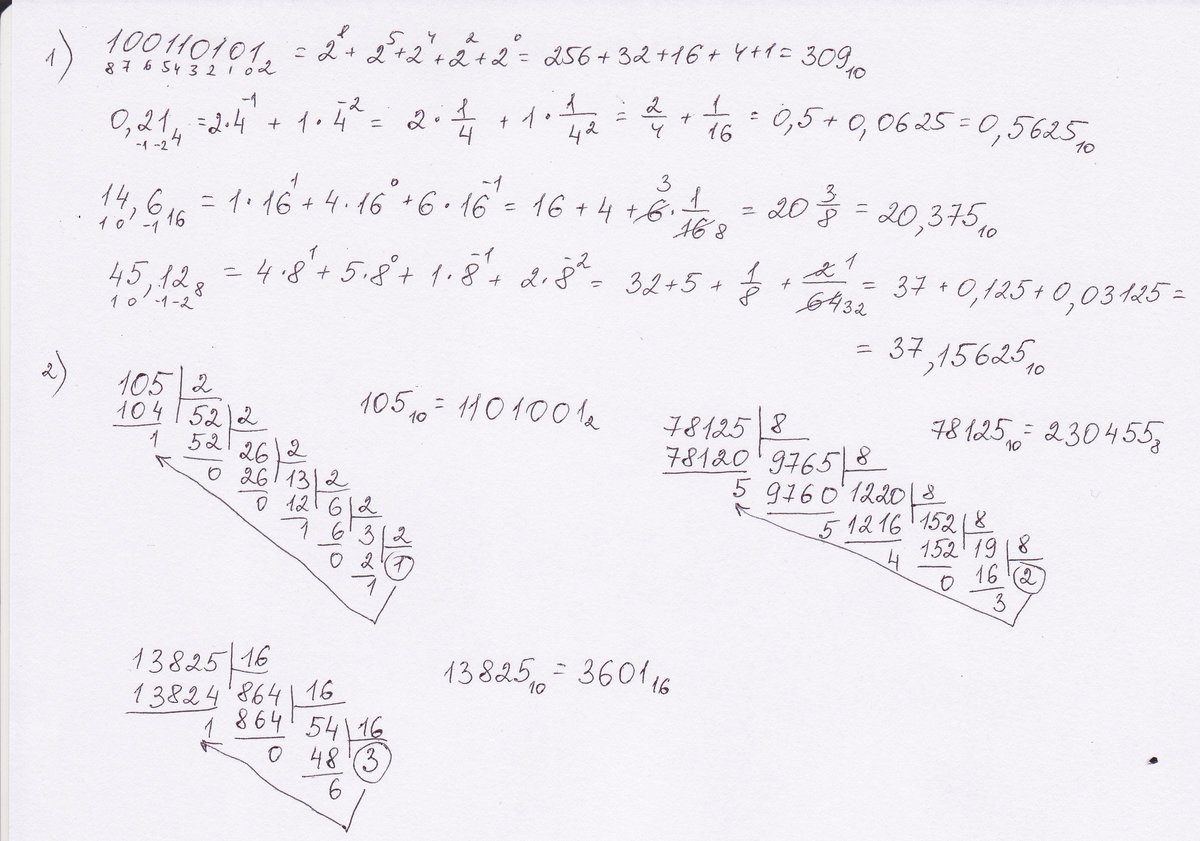 1) 100110101₂ = 2⁸ + 2⁵ + 2⁴ + 2² + 2⁰ = 256 + 32 + 16 + 4 + 1 = 309₁₀
8 7 6 5 4 3 2 1 0
0,21₄ = 2·4⁻¹ + 1·4⁻² = 2·1/4 + 1·1/4² = 2/4 + 1/16 = 0,5 + 0,0625 = 0,5625₁₀
-1 -2
14,6₁₆ = 1·16¹ + 4·16⁰ + 6·16⁻¹ = 16 + 4 + 6·1/16 = 20 3/8 = 20,375₁₀
3 8
1 0 -1
45,12₈ = 4·8¹ + 5·8⁰ + 1·8⁻¹ + 2·8⁻² = 32 + 5 + 1/8 + 2/64 = 37 + 0,125 + 0,03125 =
1 32
1 0 -1 -2
= 37,15625₁₀
2)
105 2
104 52 2
1 52 26 2
0 26 13 2
0 12 6 2
1 6 3 2
0 2 1
1
105₁₀ = 1101001₂
78125 8
78120 9765 8
5 9760 1220 8
5 1216 152 8
4 152 19 8
0 16 2
3
78125₁₀ = 230455₈
13825 16
13824 864 16
1 864 54 16
0 48 3
6
13825₁₀ = 3601₁₆